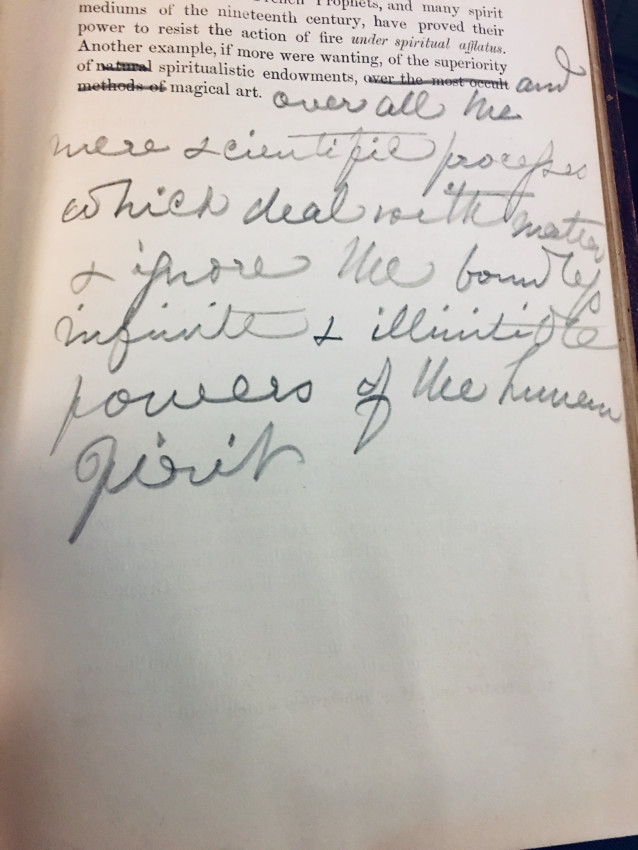 Prophets, and many spirit
mediums of the nineteenth century, have proved their
power to resist the action of fire under spiritual afflatus.
Another example, if more were wanting, of the superiority
of natural spiritualistic endowments, over the most occult and
methods of magical art. over all the
mere scientific processes
which deal with matter
& ignore the boundless
infinite & illimitible
powers of the human
spirit